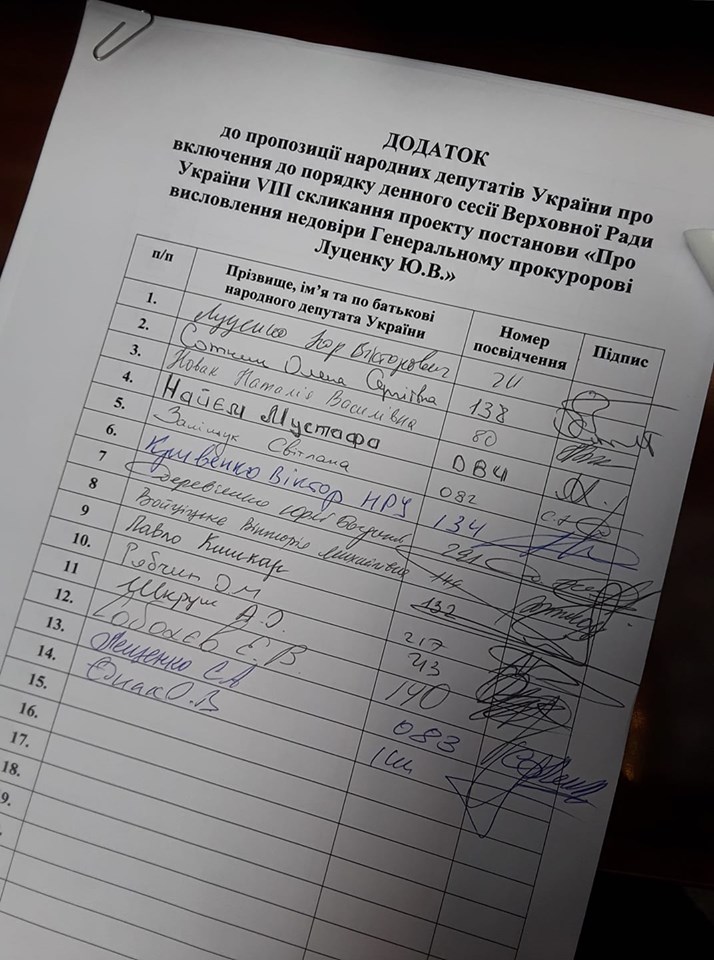 ДОДАТОК
до пропозиції народних депутатів України про
включення до порядку денного сесії Верховної Ради
України VIII скликання проекту постанови «Про
висловлення недовіри Генеральному прокуророві
Луценку Ю.В.»
п/п Прізвище, ім’я та по батькові народного депутата України Номер посвідчення Підпис
1. Луценко Ігор Вікторович 211
2. Сотник Олена Сергіївна 138
3. Новак Наталія Василівна 80
4. Найєм Мустафа 084
5. Заліщук Світлана 082
6. Кривенко Віктор НРУ 134
7 Дерев'янко Юрій Богданович
8 Войціцька Вікторія Михайлівна 144
9 Павло Кишкар 132
10. Рябчин О М 217
11 Шкрум А.І. 213
12. Соболєв Є.В. 140
13. Лещенко С А 083
14. Єднак О.В
15.
16.
17.
18.
9.